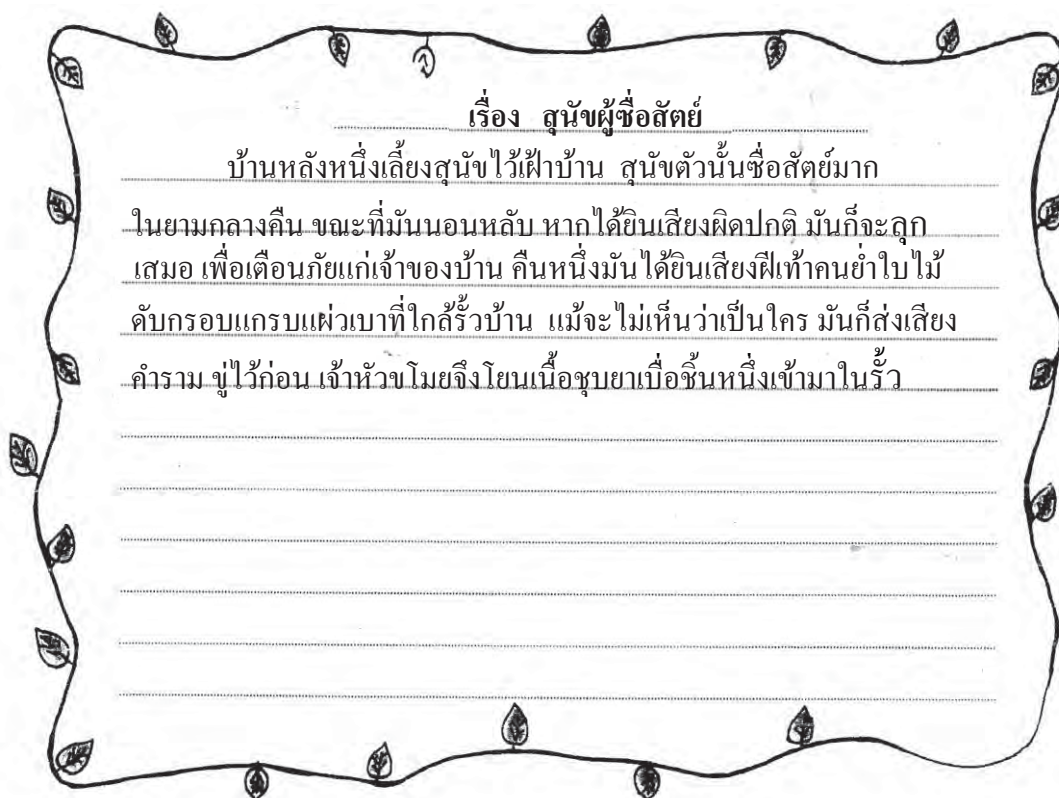 เรื่อง สุนัขผู้ซื่อสัตย์
บ้านหลังหนึ่งเลี้ยงสุนัขไว้เฝ้าบ้าน สุนัขตัวนั้นซื่อสัตย์มาก
ในยามกลางคืน ขณะที่มันนอนหลับ หากได้ยินเสียงผิดปกติ มันก็จะลุก
เสมอ เพื่อเตือนภัยแก่เจ้าของบ้าน คืนหนึ่งมันได้ยินเสียงฝีเท้าคนย่ำใบไม้
ดับกรอบแกรบแผ่วเบาที่ใกล้รั้วบ้าน แม้จะไม่เห็นว่าเป็นใคร มันก็ส่งเสียง
คำราม ขู่ไว้ก่อน เจ้าหัวขโมยจึงโยนเนื้อชุบยาเบื่อชิ้นหนึ่งเข้ามาในรั้ว